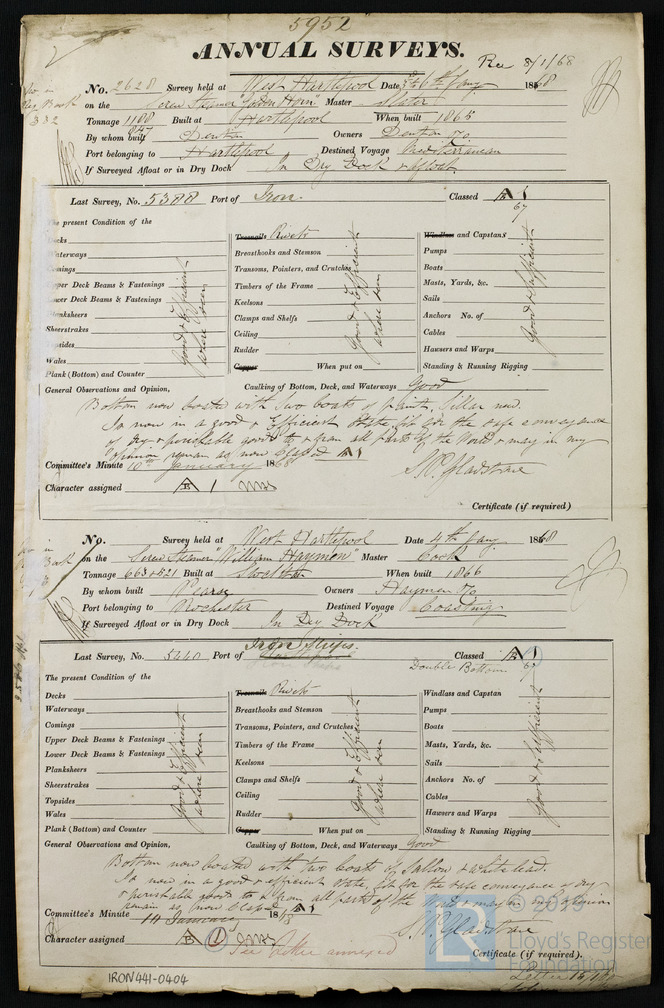 5952
ANNUAL SURVEYS.
Rec 8/1/68
No. 2628 Survey held at West Hartlepool Date 3rd & 6th Jany 1868
on the Screw Steamer "Golden Horn" Master Slater
Tonnage 1188 Built at Hartlepool When built 1865
847
By whom built Denton Owners Denton & Co
Port belonging to Hartlepool Destined Voyage Mediterranean
If Surveyed Afloat or in Dry Dock In Dry Dock & afloat
Last Survey, No. 5388 Port of Iron. Classed A 1
67
The present Condition of the
Decks
Waterways
Comings
Upper Deck Beams & Fastenings
Lower Deck Beams & Fastenings
Planksheers
Sheerstrakes
Topsides
Wales
Plank (Bottom) and Counter
Good & Efficient
where seen
Treenails Rivets
Breasthooks and Stemson
Transoms, Pointers, and Crutches
Timbers of the Frame
Keelsons
Clamps and Shelfs
Ceiling
Rudder
Copper When put on
Good & Efficient
where seen
Windlass and Capstans
Pumps
Boats
Masts, Yards, &c.
Sails
Anchors No. of
Cables
Hawsers and Warps
Standing & Running Rigging
Good & Sufficient
General Observations and Opinion, Caulking of Bottom, Deck, and Waterways Good
Bottom now coated with two coats of paint,
Is now in a good & Efficient State fit for the safe conveyance
of dry & perishable goods to & from all parts of the World & may in my
opinion remain as now Classed A 1
Committee's Minute 10th January 1868
Character assigned A 1
Certificate (if required)
No. Survey held at West Hartlepool Date 4th Jany 1868
on the Screw Steamer "William Hayman" Master Cock
Tonnage 663 & 521 Built at When built 1866
By whom built Pearse Owners Hayman & Co
Port belonging to Rochester Destined Voyage Coasting
If Surveyed Afloat or in Dry Dock In Dry Dock
Iron Ships.
Last Survey, No. 5440 Port of Classed A 1
Double Bottom 67
The present Condition of the
Decks
Waterways
Comings
Upper Deck Beams & Fastenings
Lower Deck Beams & Fastenings
Planksheers
Sheerstrakes
Topsides
Wales
Plank (Bottom) and Counter
Good & Efficient
where seen
Treenails Rivets
Breasthooks and Stemson
Transoms, Pointers, and Crutches
Timbers of the Frame
Keelsons
Clamps and Shelfs
Ceiling
Rudder
Copper When put on
Good & Efficient
where seen
Windlass and Capstan
Pumps
Boats
Masts, Yards, &c.
Sails
Anchors No. of
Cables
Hawsers and Warps
Standing & Running Rigging
Good & Sufficient
General Observations and Opinion, Caulking of Bottom, Deck, and Waterways Good
Bottom now coated with two coats of tallow & white lead.
Is now in a good & efficient state fit for the safe conveyance of dry
& perishable goods to & from all parts of the World & may in my opinion
remain as now Classed A 1
Committee's Minute 14 January 1868
Character assigned A 1
See letter annexed
Certificate (if required).
IRON441-0404
© 2019
Lloyd's Register
Foundation